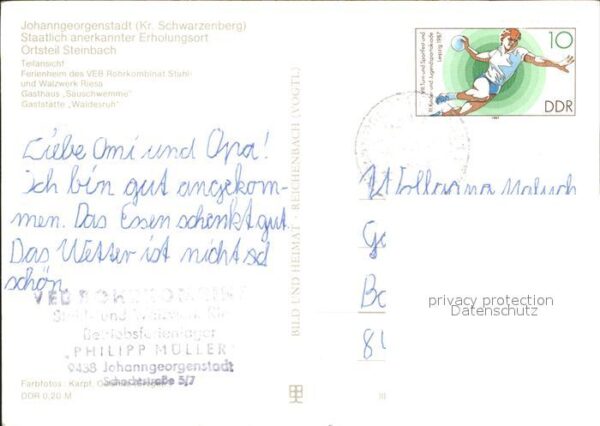 Johanngeorgenstadt (Kr. Schwarzenberg)
Staatlich anerkannter Erholungsort
Ortsteil Steinbach
Teilansicht
Ferienheim des VEB Rohrkombinat Stahl-
und Walzwerk Riesa
Gasthaus „Sauschwemme"
Gaststätte „Waldesruh"
Liebe Omi und Opa!
Ich bin gut angekom-
men. Das Essen schmekt gut.
Das Wetter ist nicht so
schön.
VEB ROHRKOMBINAT
Stahl- und Walzwerk Riesa
Betriebsferienlager
„PHILIPP MÜLLER"
9438 Johanngeorgenstadt
Schachtstraße 5/7
Farbfotos: Karpf,
DDR 0,20 M
BILD UND HEIMAT · REICHENBACH (VOGTL.)
VIII. Turn- und Sportfest und
XI. Kinder- und Jugendspartakiade
Leipzig 1987
10
DDR
1987
Ge
Ba
81
privacy protection
Datenschutz
III